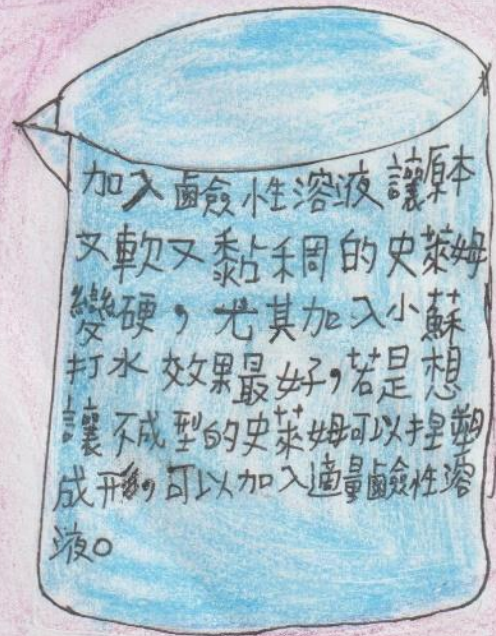 加入鹼性溶液讓原本
又軟又黏稠的史萊姆
變硬，尤其加入小蘇
打水效果最好，若是想
讓不成型的史萊姆可以捏塑
成形，可以加入適量鹼性溶
液。